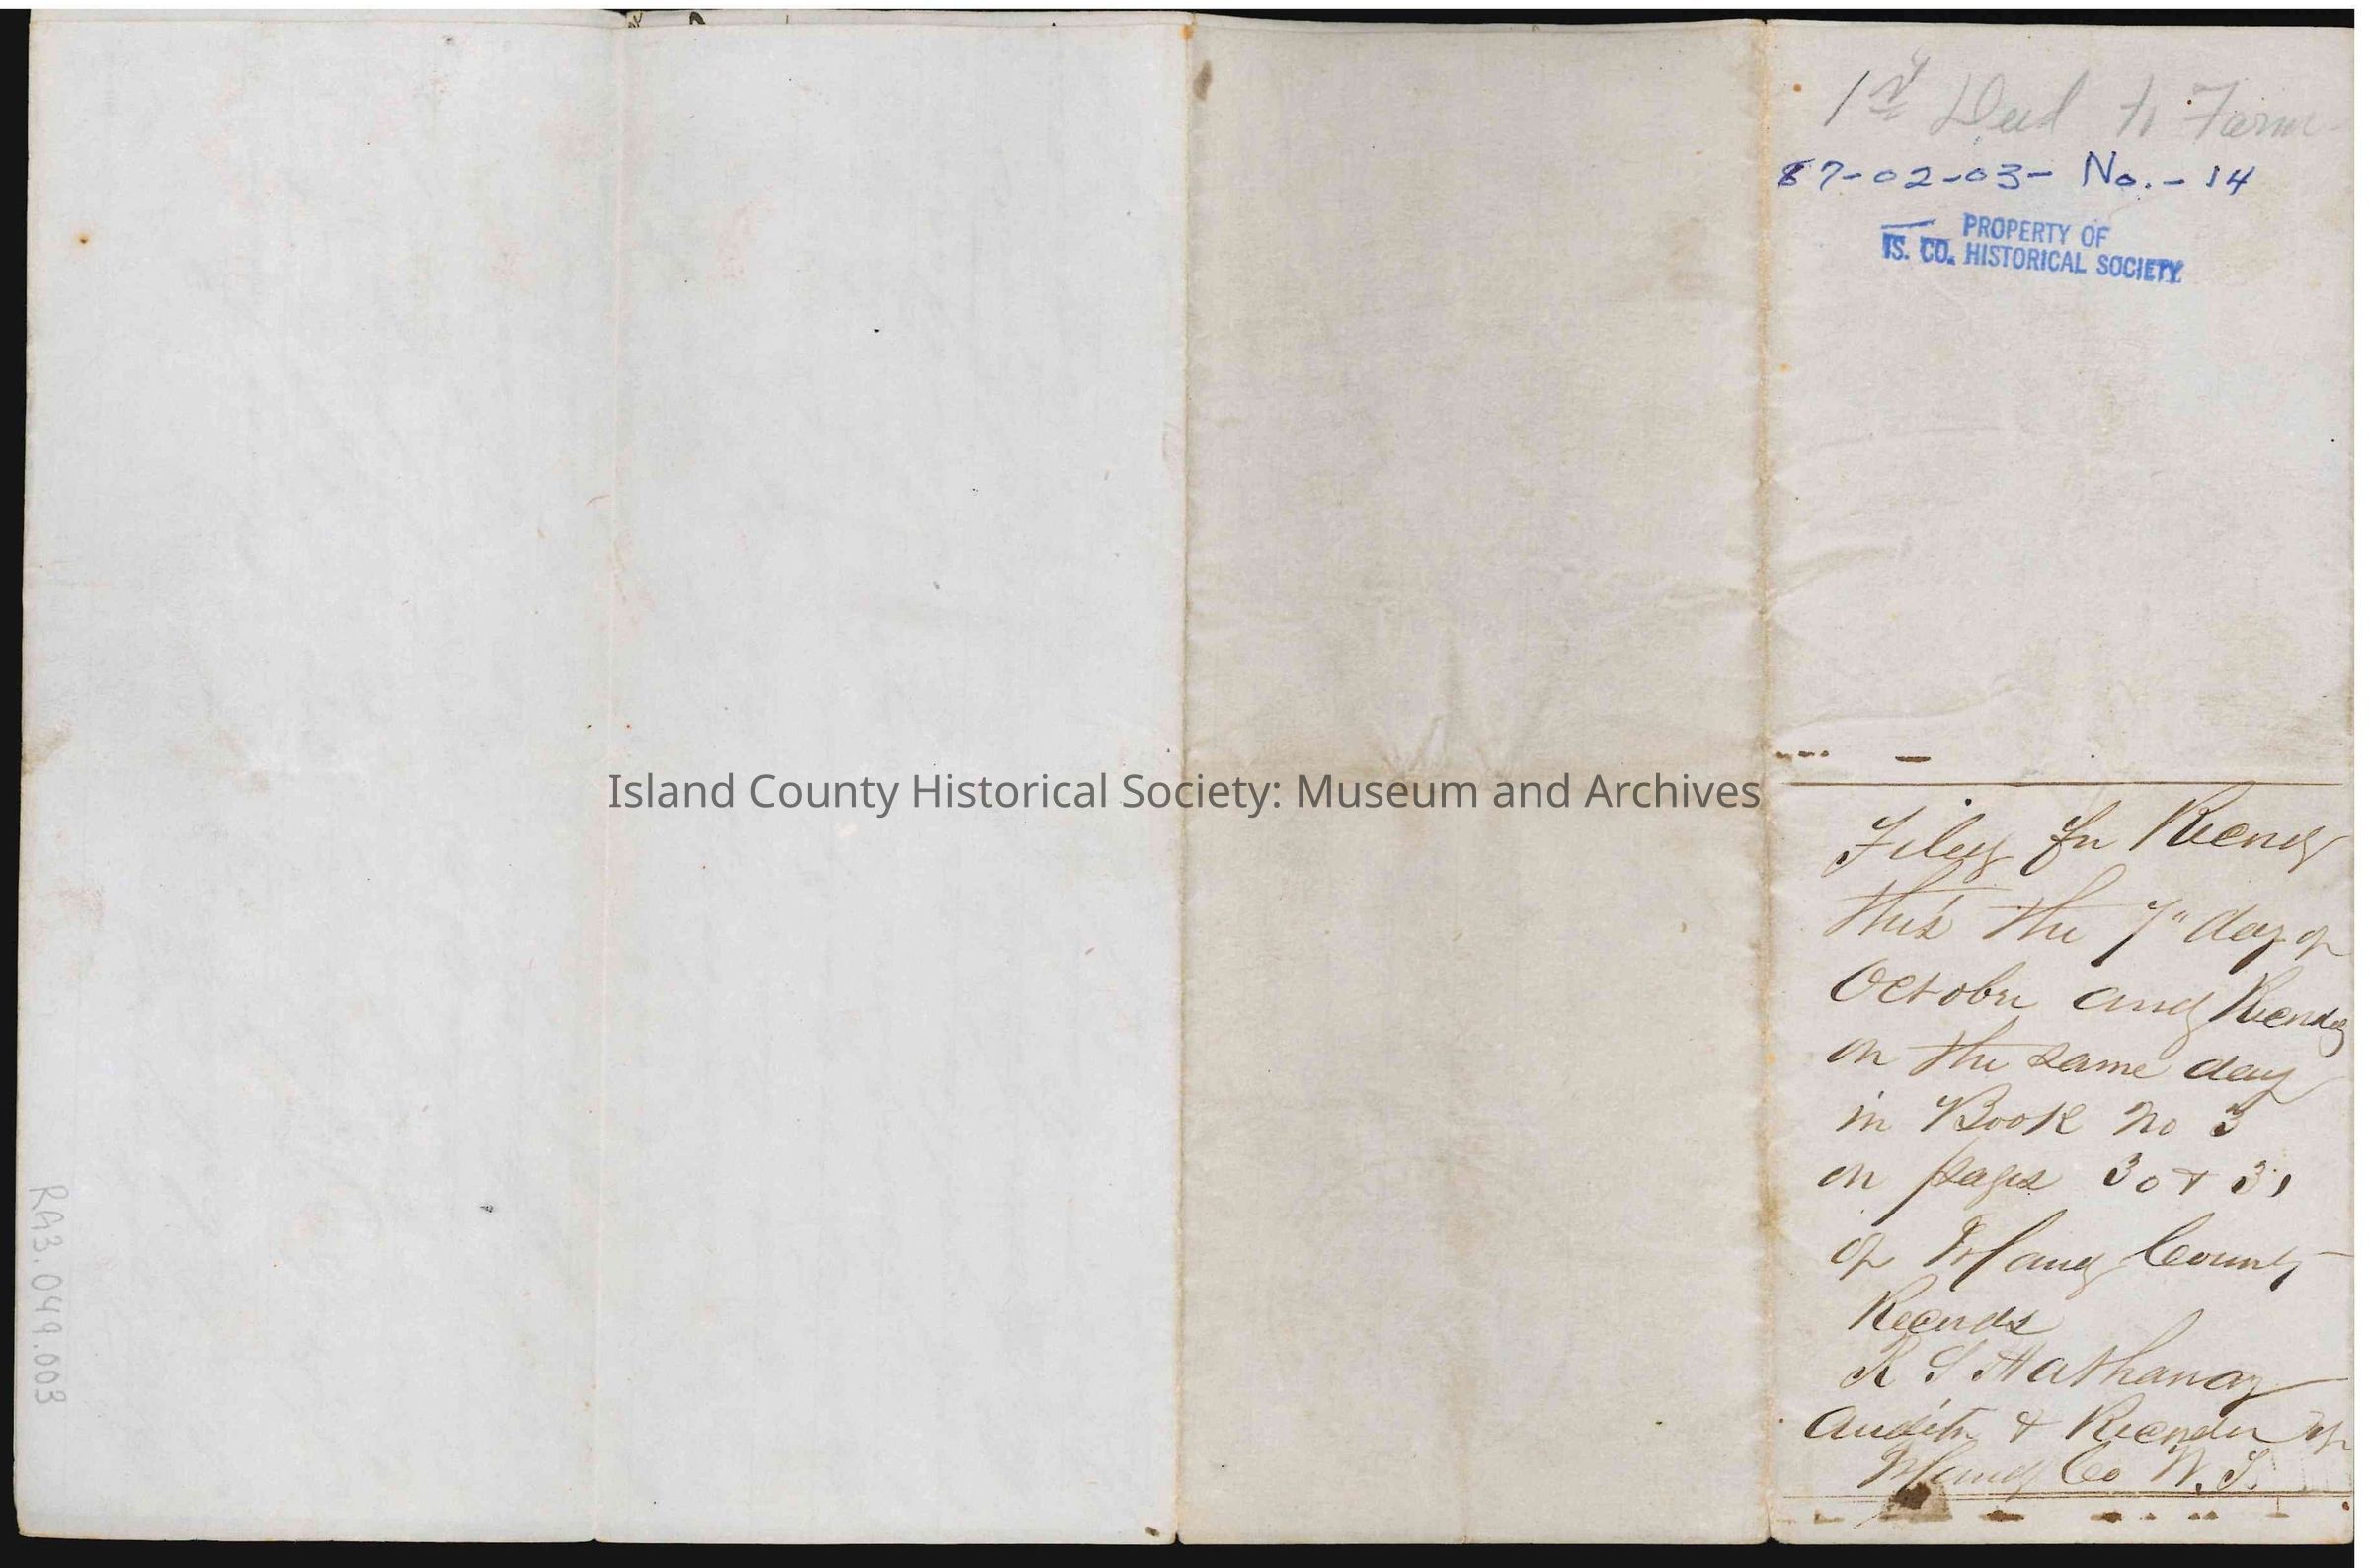 1st Deed to Farm
87-02-03- No.- 14
PROPERTY OF
IS. CO. HISTORICAL SOCIETY
Island County Historical Society: Museum and Archives
Filed for Record
this the 7" day of
October and Recorded
on the same day
in Book No 3
on pages 30 & 31
of Island County
Records
R S Hathaway
Auditor & Recorder of
Island Co W. T.
RG3.049.003